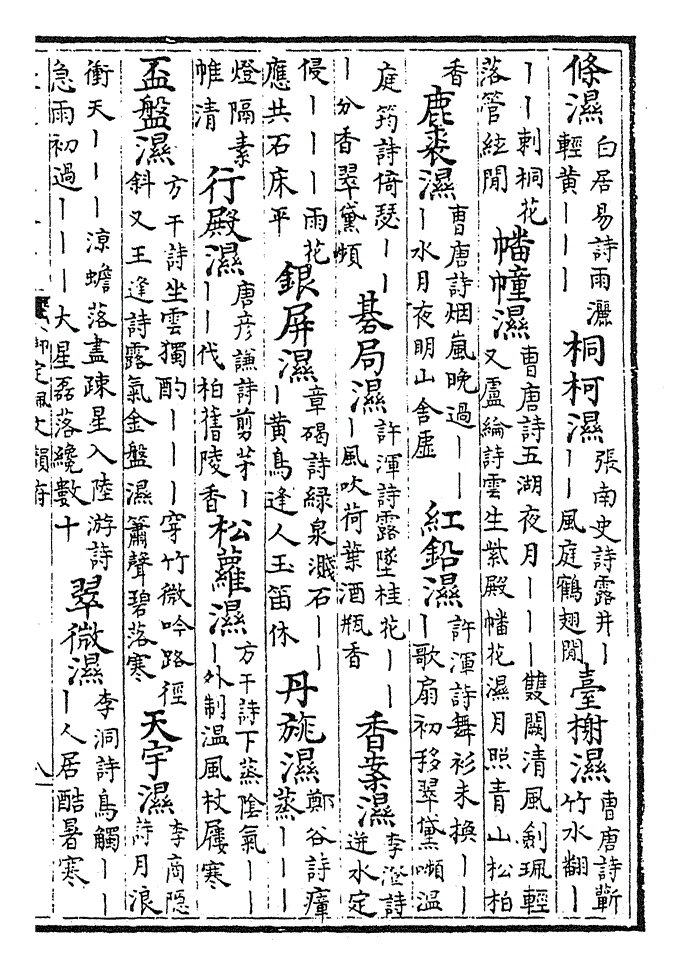 條濕白居易詩雨灑輕黃｜｜｜桐柯濕張南史詩露井｜｜｜風庭鶴翅閒臺榭濕曹唐詩蘄竹水翻｜
｜｜刺桐花落管絃閒幡幢濕曹唐詩五湖夜月｜｜｜雙闕清風劍珮輕又盧綸詩雲生紫殿幡花濕月照青山松柏
香鹿裘濕曹唐詩烟嵐晚過｜｜｜水月夜明山舍虛紅鉛濕許渾詩舞衫未換｜｜｜歌扇初移翠黛嚬溫
庭筠詩倚瑟｜｜｜分香翠黛嚬碁局濕許渾詩露墜桂花｜｜｜風吹荷葉酒瓶香香案濕李澄詩迸水定
侵｜｜｜雨花應共石床平銀屏濕章碣詩綠泉濺石｜｜｜黃鳥逢人玉笛休丹旐濕鄭谷詩瘴蒸｜｜｜
燈隔素帷清行殿濕唐彥謙詩剪茅｜｜｜代柏舊陵香松蘿濕方干詩下蒸陰氣｜｜｜外制溫風杖屨寒
盃盤濕方干詩坐雲獨酌｜｜｜穿竹微吟路徑斜又王逢詩露氣金盤濕簫聲碧落寒天宇濕李商隱詩月浪
衝天｜｜｜涼蟾落盡疎星入陸游詩急雨初過｜｜｜大星磊落纔數十翠微濕李洞詩鳥觸｜｜｜人居酷暑寒